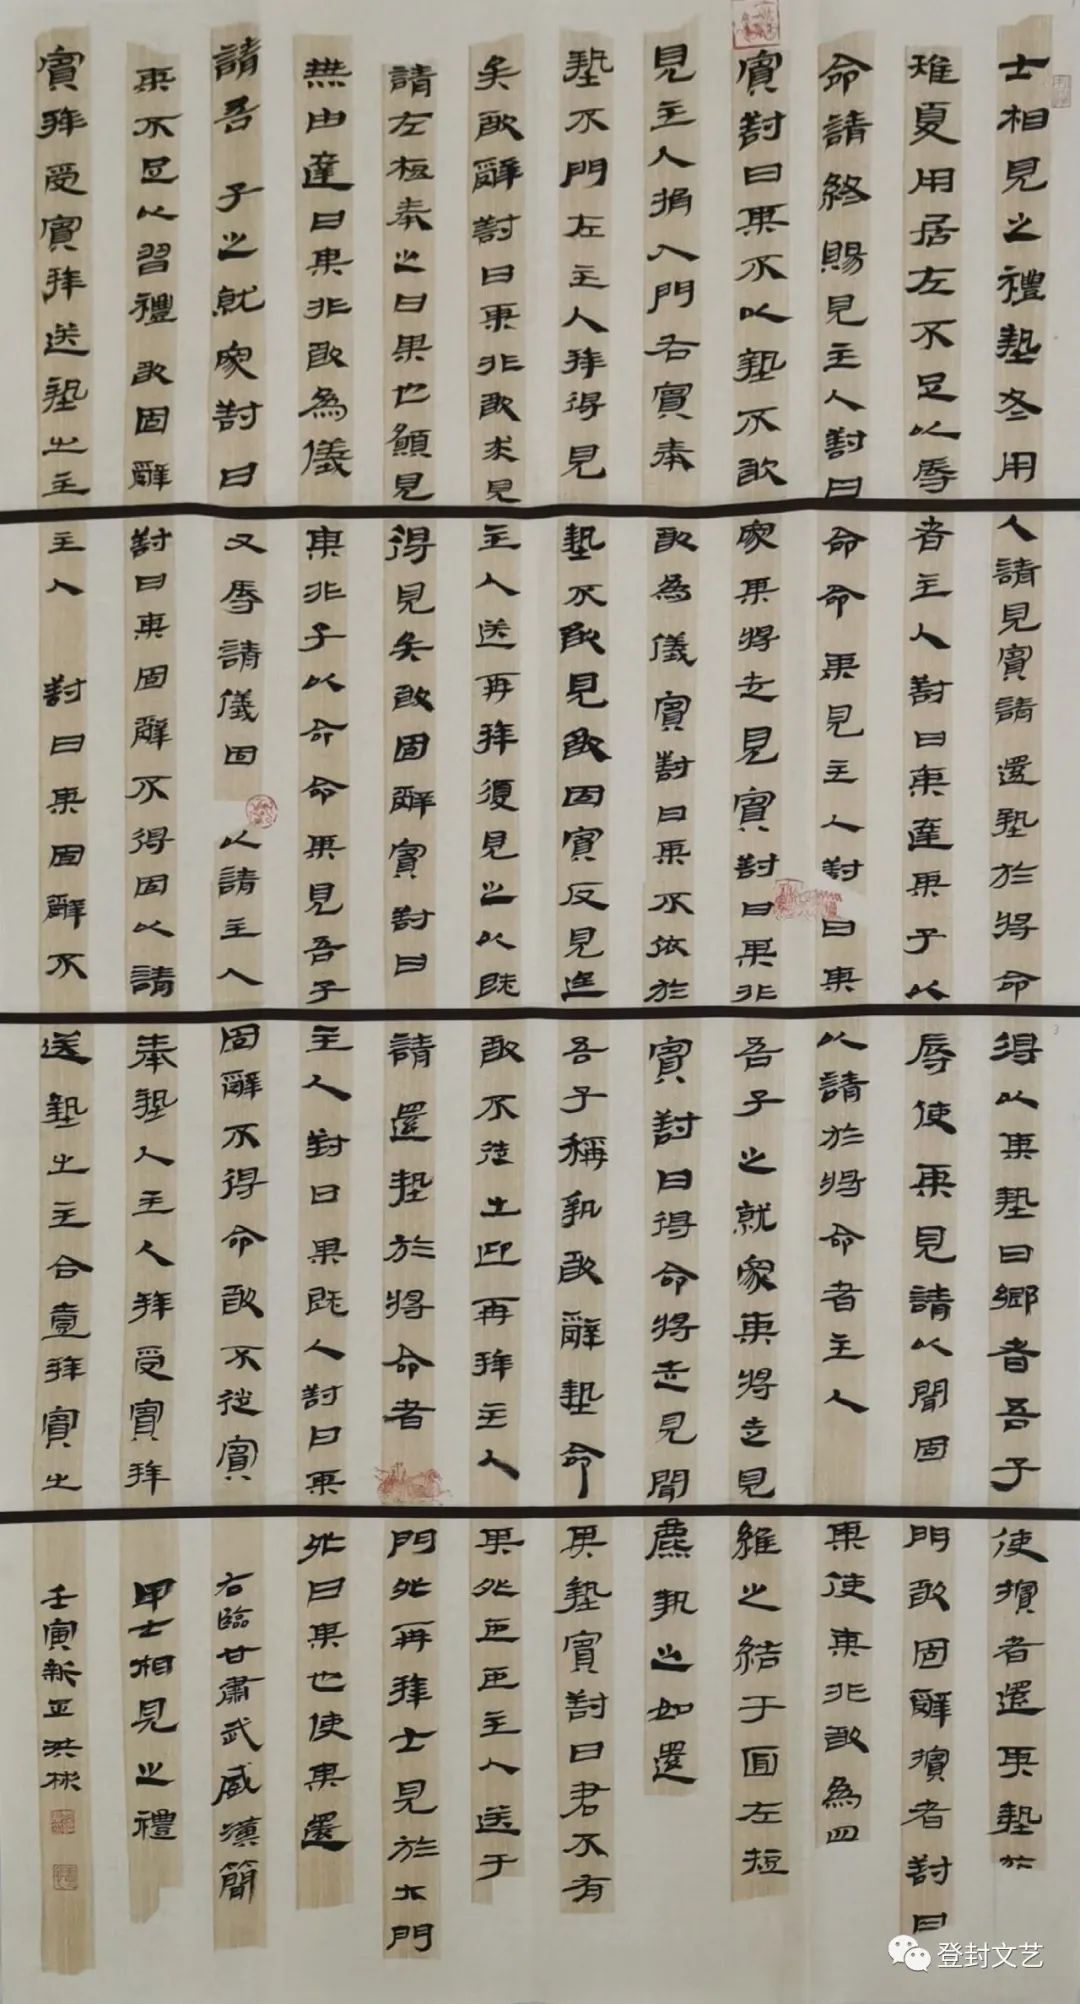 士相見之禮墊冬用
雉夏用居左不足以辱
命請終賜見主人對曰
賓對曰某不以墊不敢
見主人揖入門右賓奉
墊不門左主人拜得見
矣敢辭對曰某非敢求見
請左梪奉之曰某也願見
無由達曰某非敢為儀
請吾子之就家對曰
某不足以習禮敢固辭
賓拜受賓拜送墊出主
人請見賓請還墊於將命
者主人對曰某達某子以
命命某見主人對曰某
家某將走見賓對曰某非
敢為儀賓對曰某不依於
墊不敢見敢固賓反見進
主人送再拜復見之以既
得見矣敢固辭賓對曰
某非子以命命某見吾子
又辱請儀固以請主人
對曰某固辭不得固以請
主人對曰某固辭不
得以某墊曰鄉者吾子
辱使某見請以聞固
以請於將命者主人
吾子之就家某將走見
賓對曰得命將走見聞
吾子稱執敢辭墊命
敢不從出迎再拜主人
請還墊於將命者
主人對曰某既人對曰某
固辭不得命敢不從賓
奉墊人主人拜受賓拜
送墊出主合壹拜賓出
使擯者還某墊於
門敢固辭擯者對曰
某使某非敢為四
維之結于面左梪
麃執之如還
某墊賓對曰君不有
某外臣臣主人送于
門外再拜士見於大門
外曰某也使某還
右臨甘肅武威漢簡
甲士相見之禮
壬寅新正洪彬
登封文艺